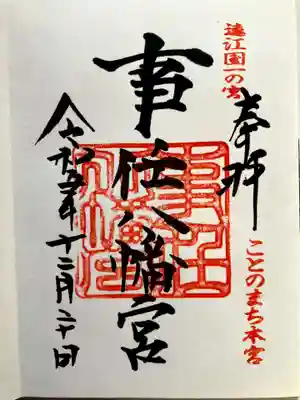 遠江国一の宮
奉拝
ことのまち本宮
事任八幡宮
令和六年十二月二十日